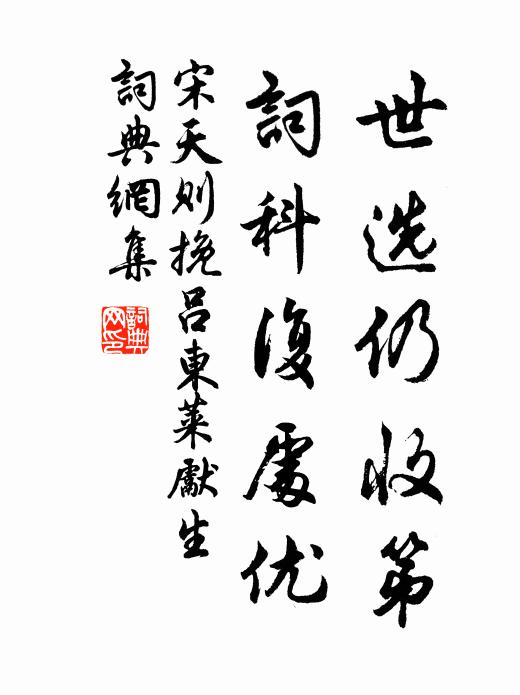 世选仍收第
詞科復處优
宋天则挽吕東萊獻生
詞典網集
詞典网印